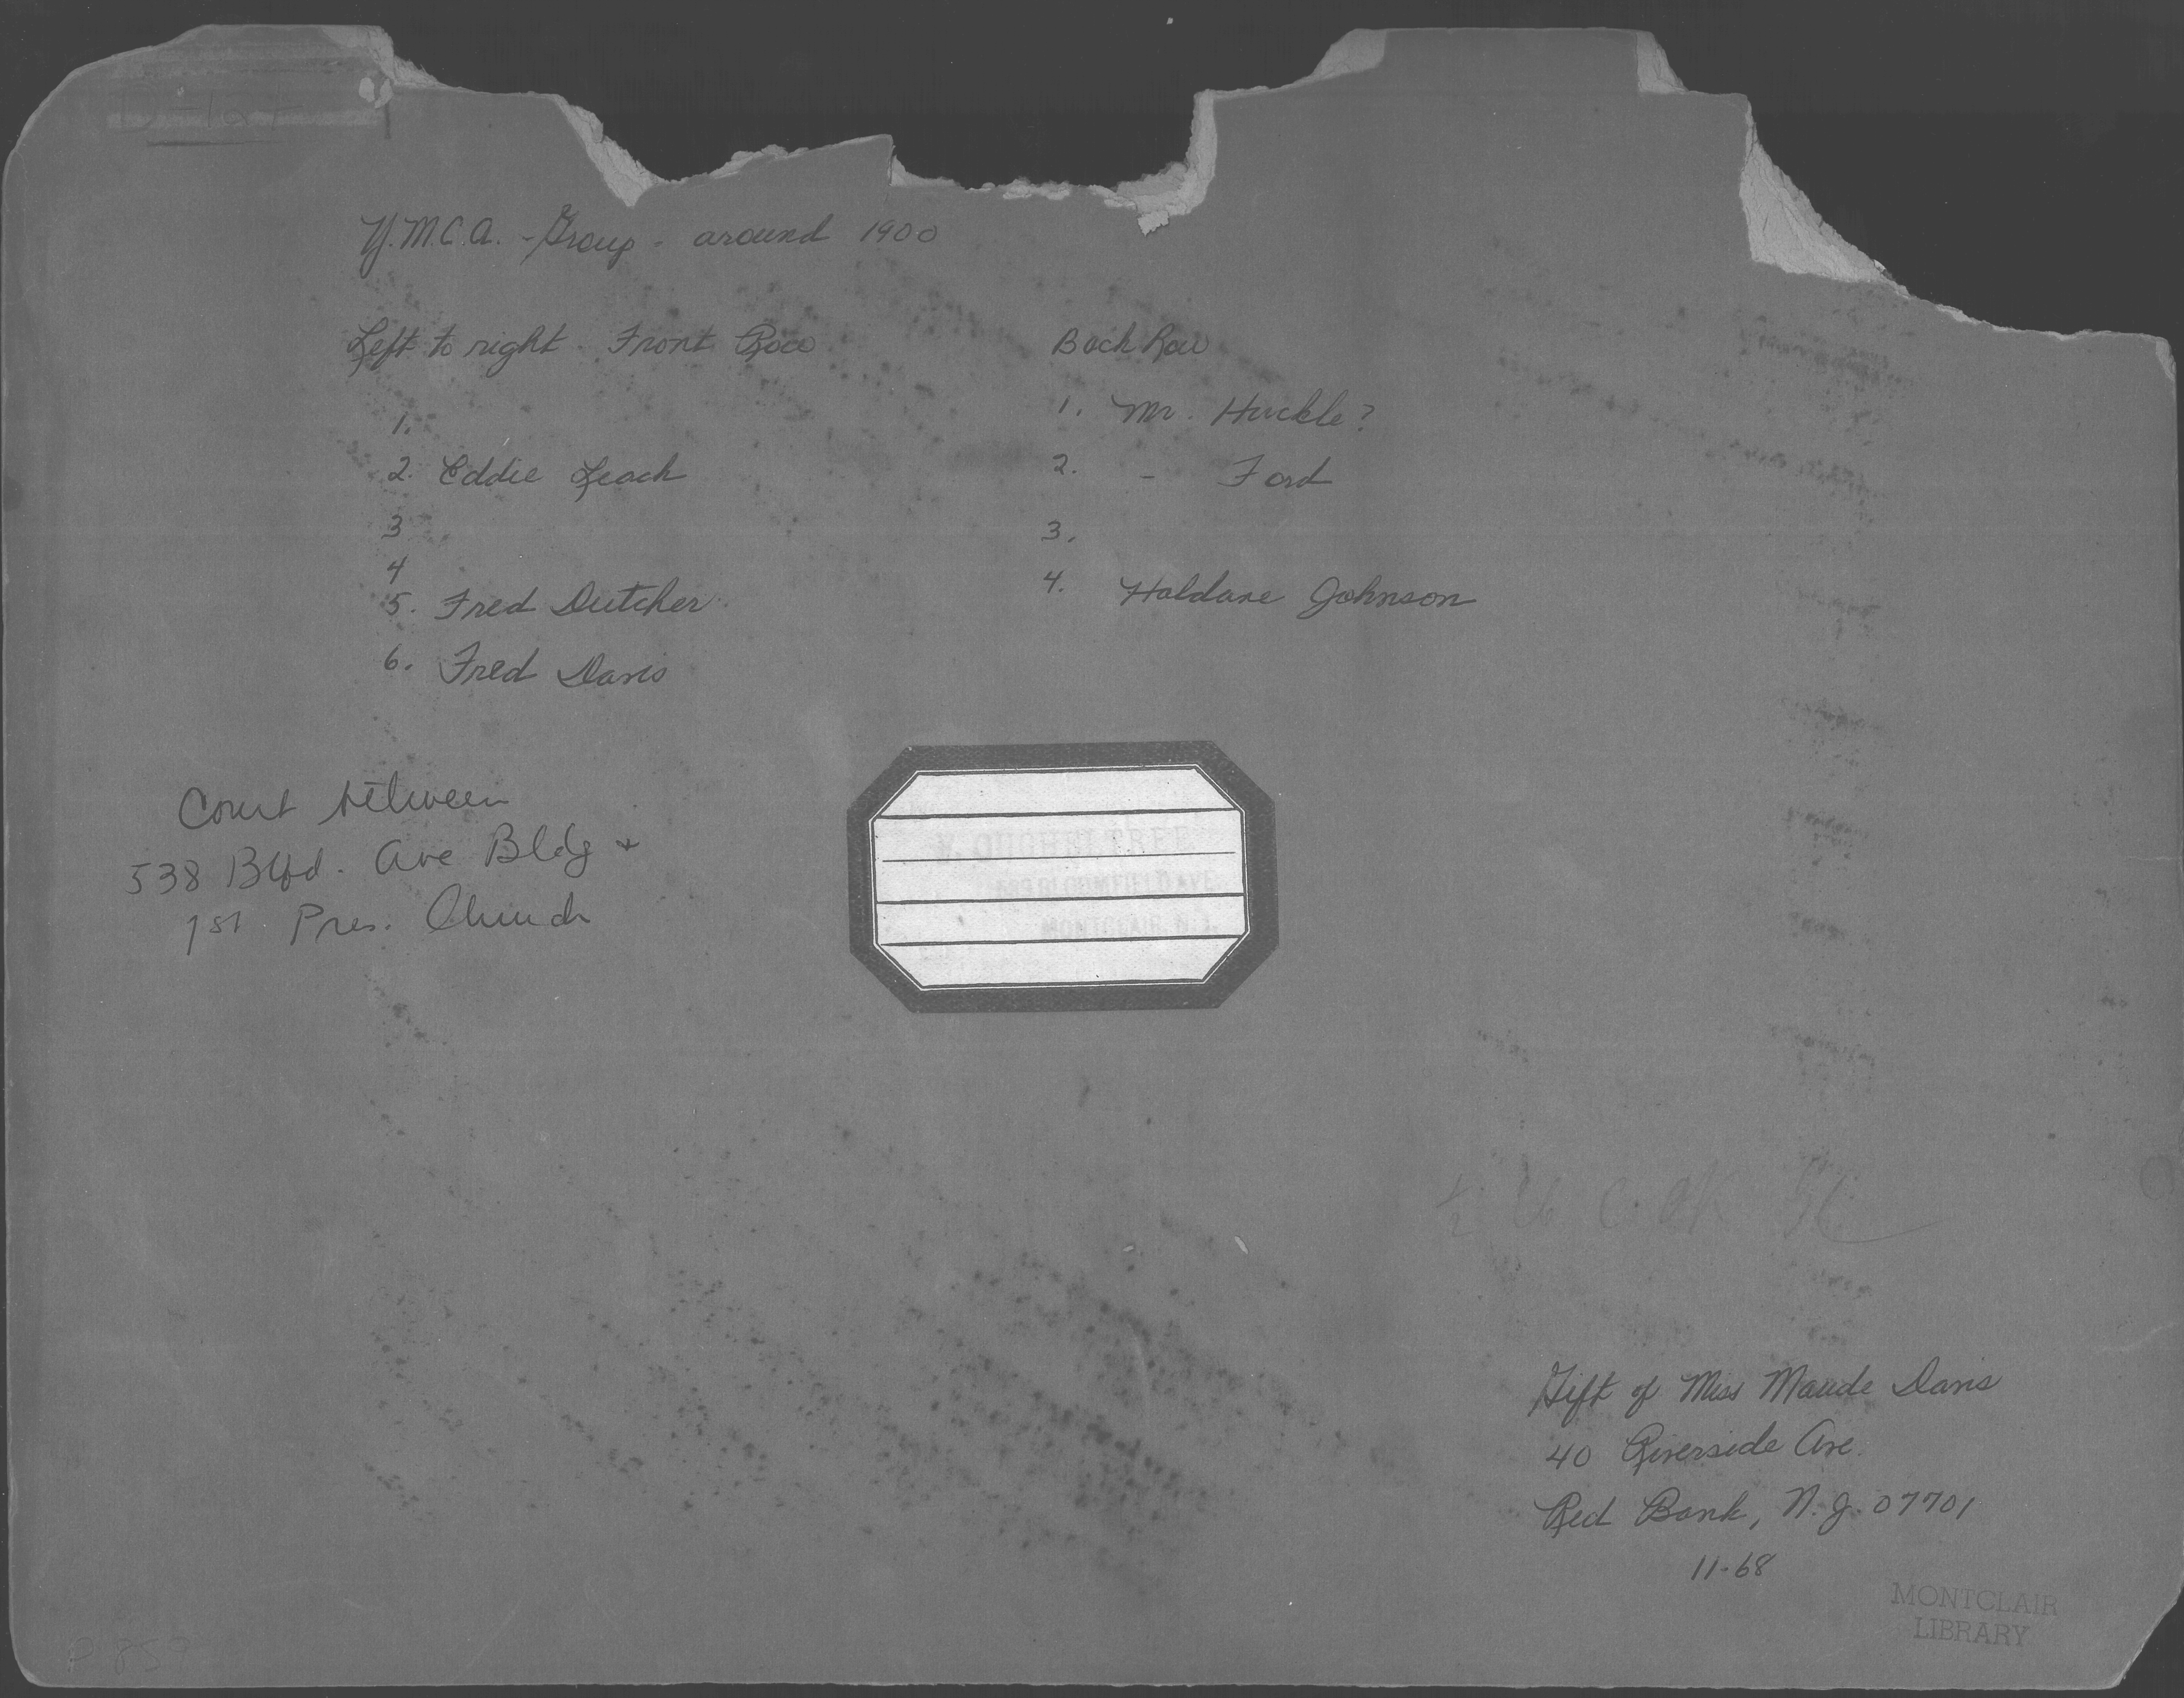 Y.M.C.A. - Group - around 1900
Left to right - Front Row
1.
2. Eddie Leach
3
4
5. Fred Dutcher
6. Fred Davis
Back Row
1. Mr. Huckle?
2. - Ford
3.
4. Haldane Johnson
Court between
538 Blfd. Ave Bldg +
1st Pres. Church
BLOOMFIELD AVE
MONTCLAIR, N.J.
Gift of Miss Maude Davis
40 Riverside Ave.
Red Bank, N.J. 07701
11-68
MONTCLAIR
LIBRARY